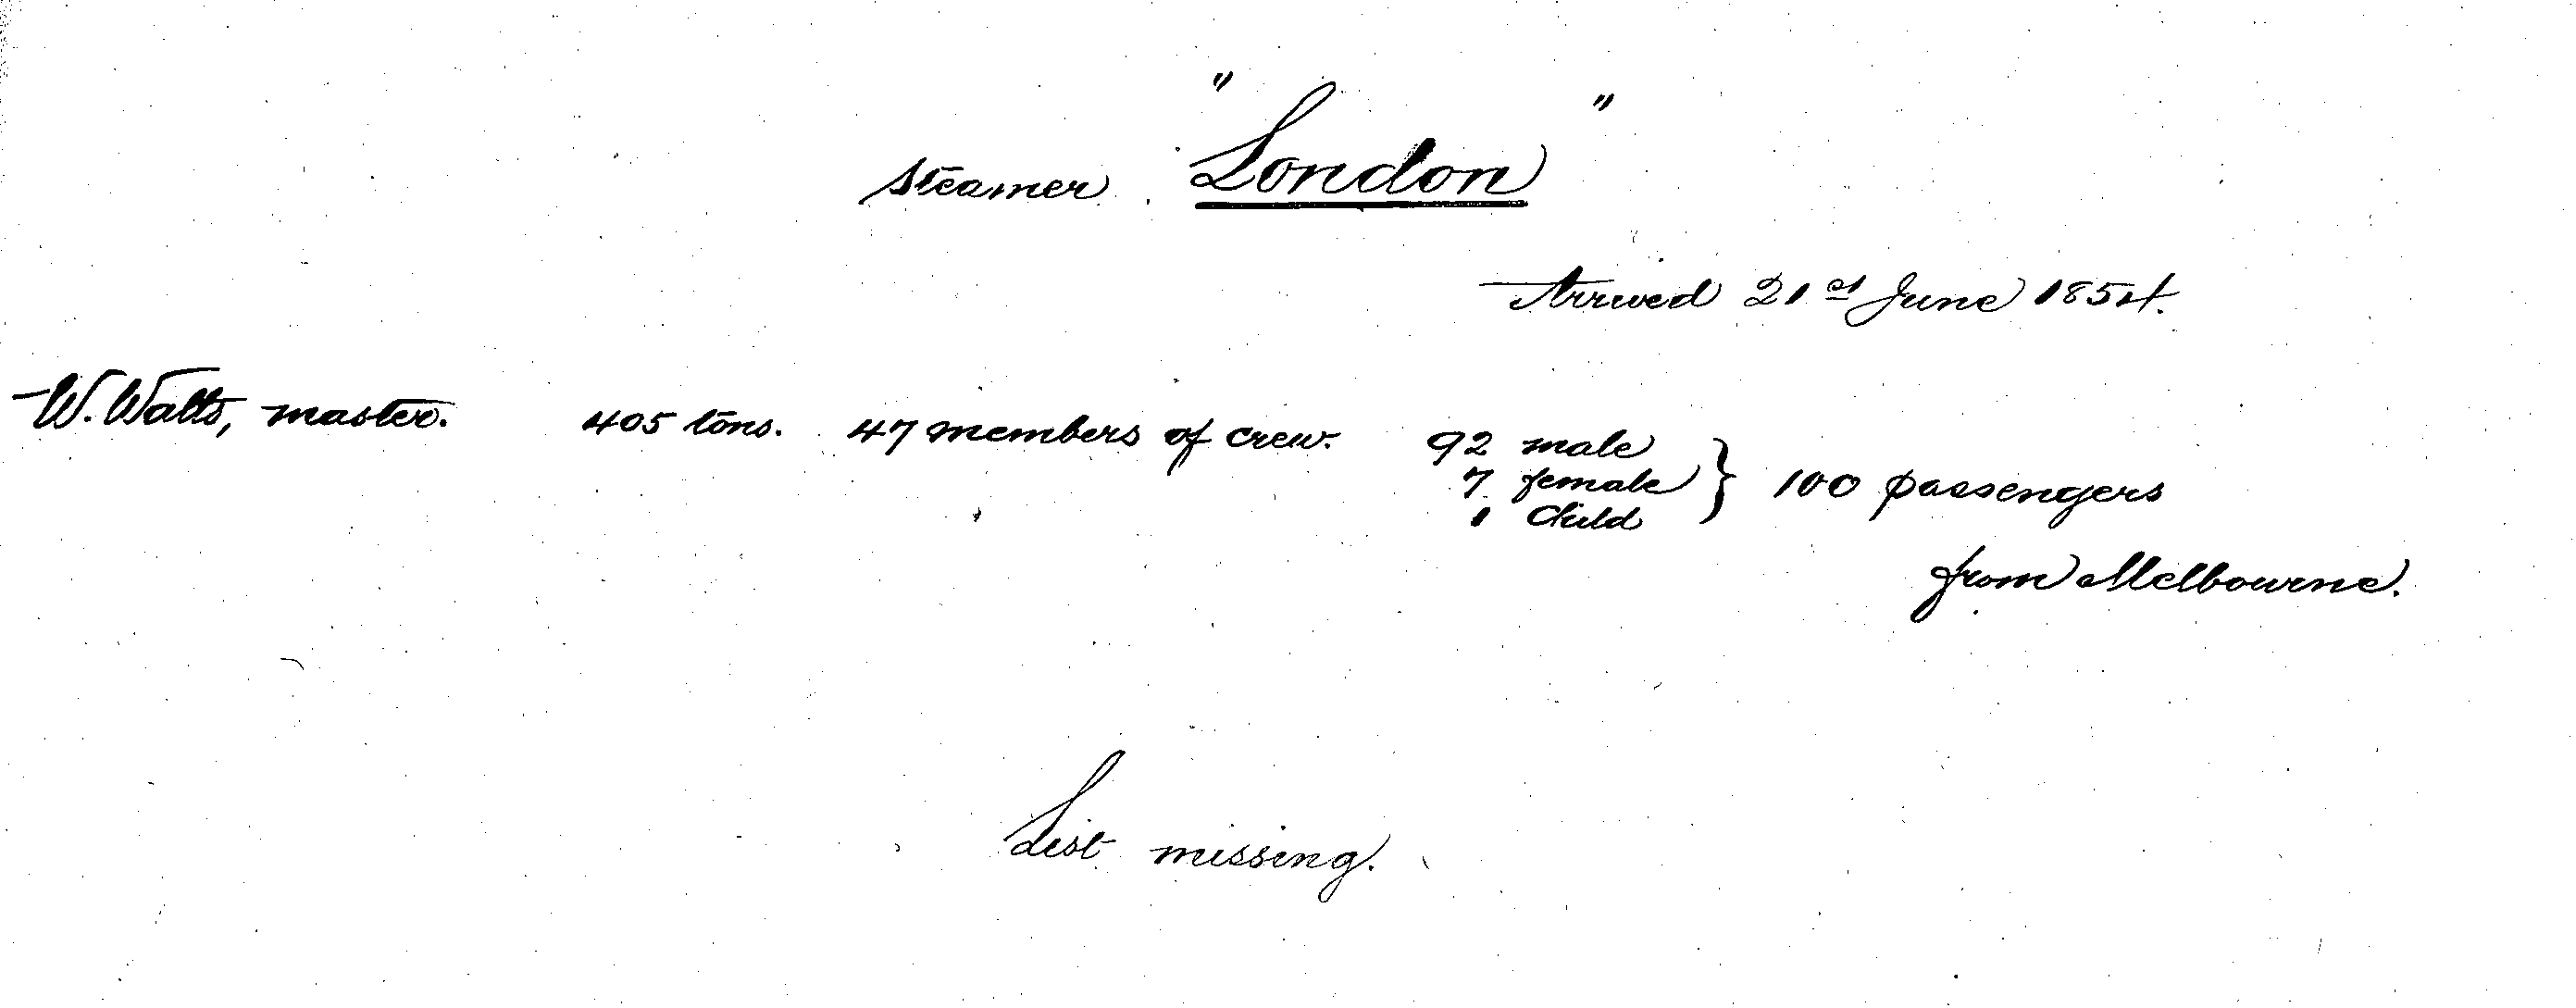 Steamer "London"
Arrived 21st June 1854.
W. Watts, master. 405 tons. 47 members of crew. 92 male
7 female } 100 passengers
1 Child
from Melbourne.
List missing.